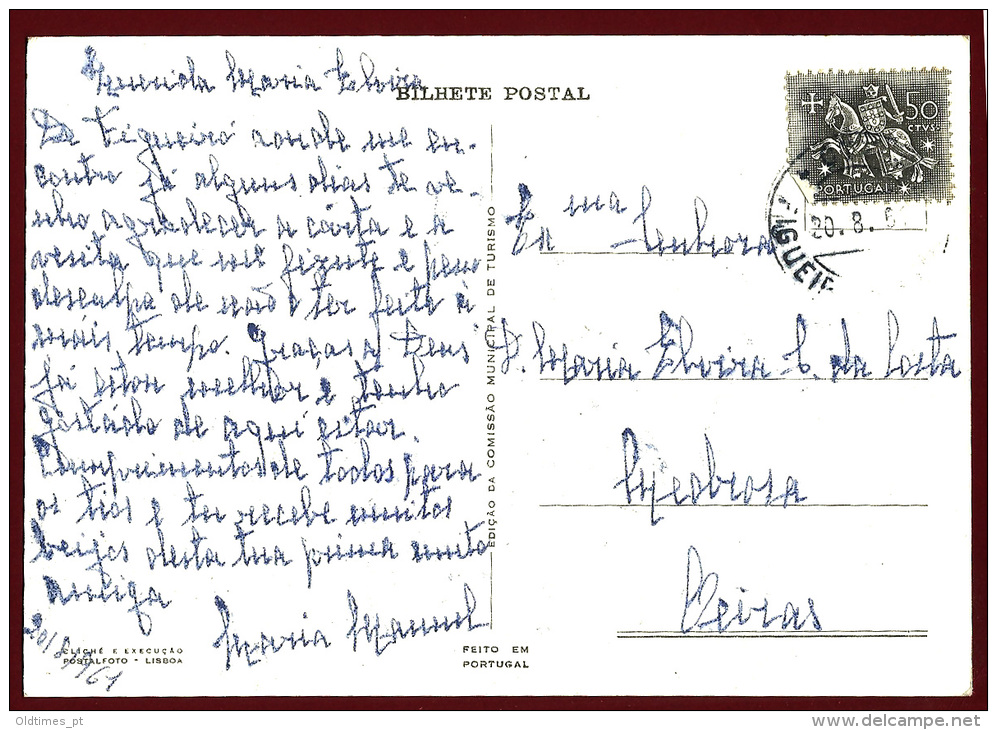 Maria Elvira
BILHETE POSTAL
De Figueiró aonde me en-
contro já alguns dias te ve-
nho agradecer a carta e a
visita que me fizeste e peço
desculpa de não o ter feito à
mais tempo. Graças a Deus
já estou melhor e tenho
gostado de aqui estar.
Comprimentos de todos para
os tios e tu recebe muitos
beijos desta tua prima muito
amiga
Maria Manuel
20/8/961
CLICHÉ E EXECUÇÃO
POSTALFOTO - LISBOA
EDIÇÃO DA COMISSÃO MUNICIPAL DE TURISMO
FEITO EM
PORTUGAL
50
CTVS.
PORTUGAL
20. 8. 6
FIGUEIR
Ex ma Senhora
D. Maria Elvira C. da Costa
Oeiras
Oldtimes_pt
www.delcampe.net